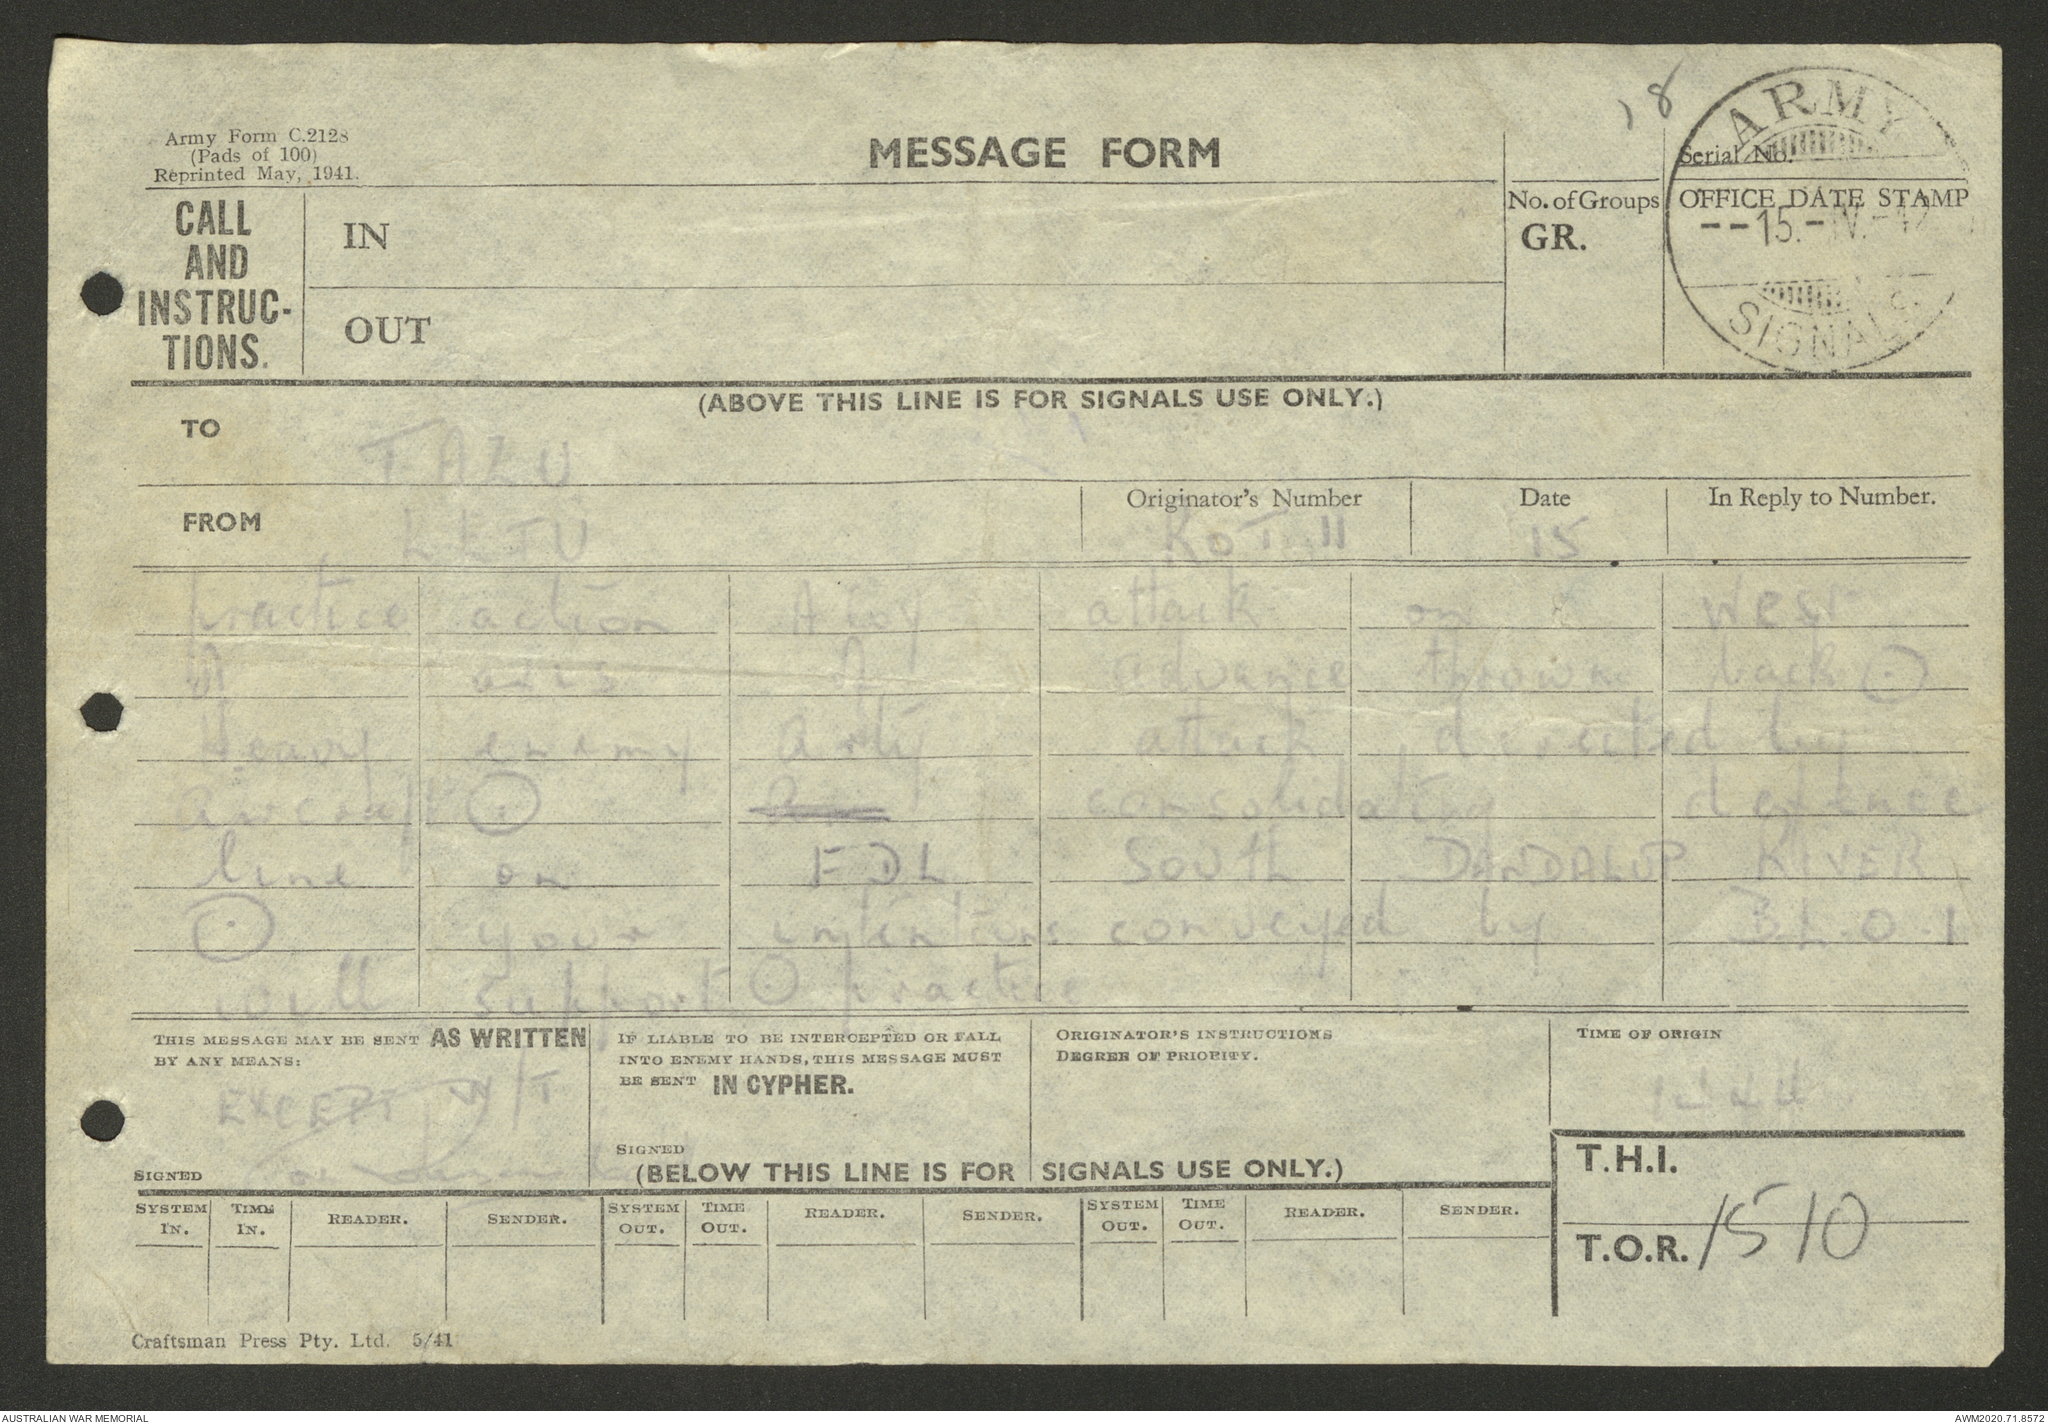 18
Army Form C.2128
(Pads of 100)
Reprinted May, 1941.
MESSAGE FORM
Serial No.
ARMY
SIGNALS
--15.-IV.-42
CALL AND INSTRUC-TIONS.
IN
OUT
No. of Groups
GR.
OFFICE DATE STAMP
(ABOVE THIS LINE IS FOR SIGNALS USE ONLY.)
TO TAZU
FROM
Originator's Number
Date
In Reply to Number.
15
practice action attack on West
axis advance thrown back
Heavy enemy Arty attack directed by
Aircraft consolidating defence
line on FDL SOUTH DANDALUP RIVER
your intentions conveyed by B.L.O.1
will support practice
THIS MESSAGE MAY BE SENT AS WRITTEN
BY ANY MEANS:
EXCEPT W/T
SIGNED
IF LIABLE TO BE INTERCEPTED OR FALL
INTO ENEMY HANDS, THIS MESSAGE MUST
BE SENT IN CYPHER.
SIGNED
ORIGINATOR'S INSTRUCTIONS
DEGREE OF PRIORITY.
TIME OF ORIGIN
(BELOW THIS LINE IS FOR SIGNALS USE ONLY.)
T.H.I.
T.O.R. 1510
SYSTEM IN. TIME IN. READER. SENDER. SYSTEM OUT. TIME OUT. READER. SENDER. SYSTEM OUT. TIME OUT. READER. SENDER.
Craftsman Press Pty. Ltd. 5/41
AUSTRALIAN WAR MEMORIAL
AWM2020.71.8572